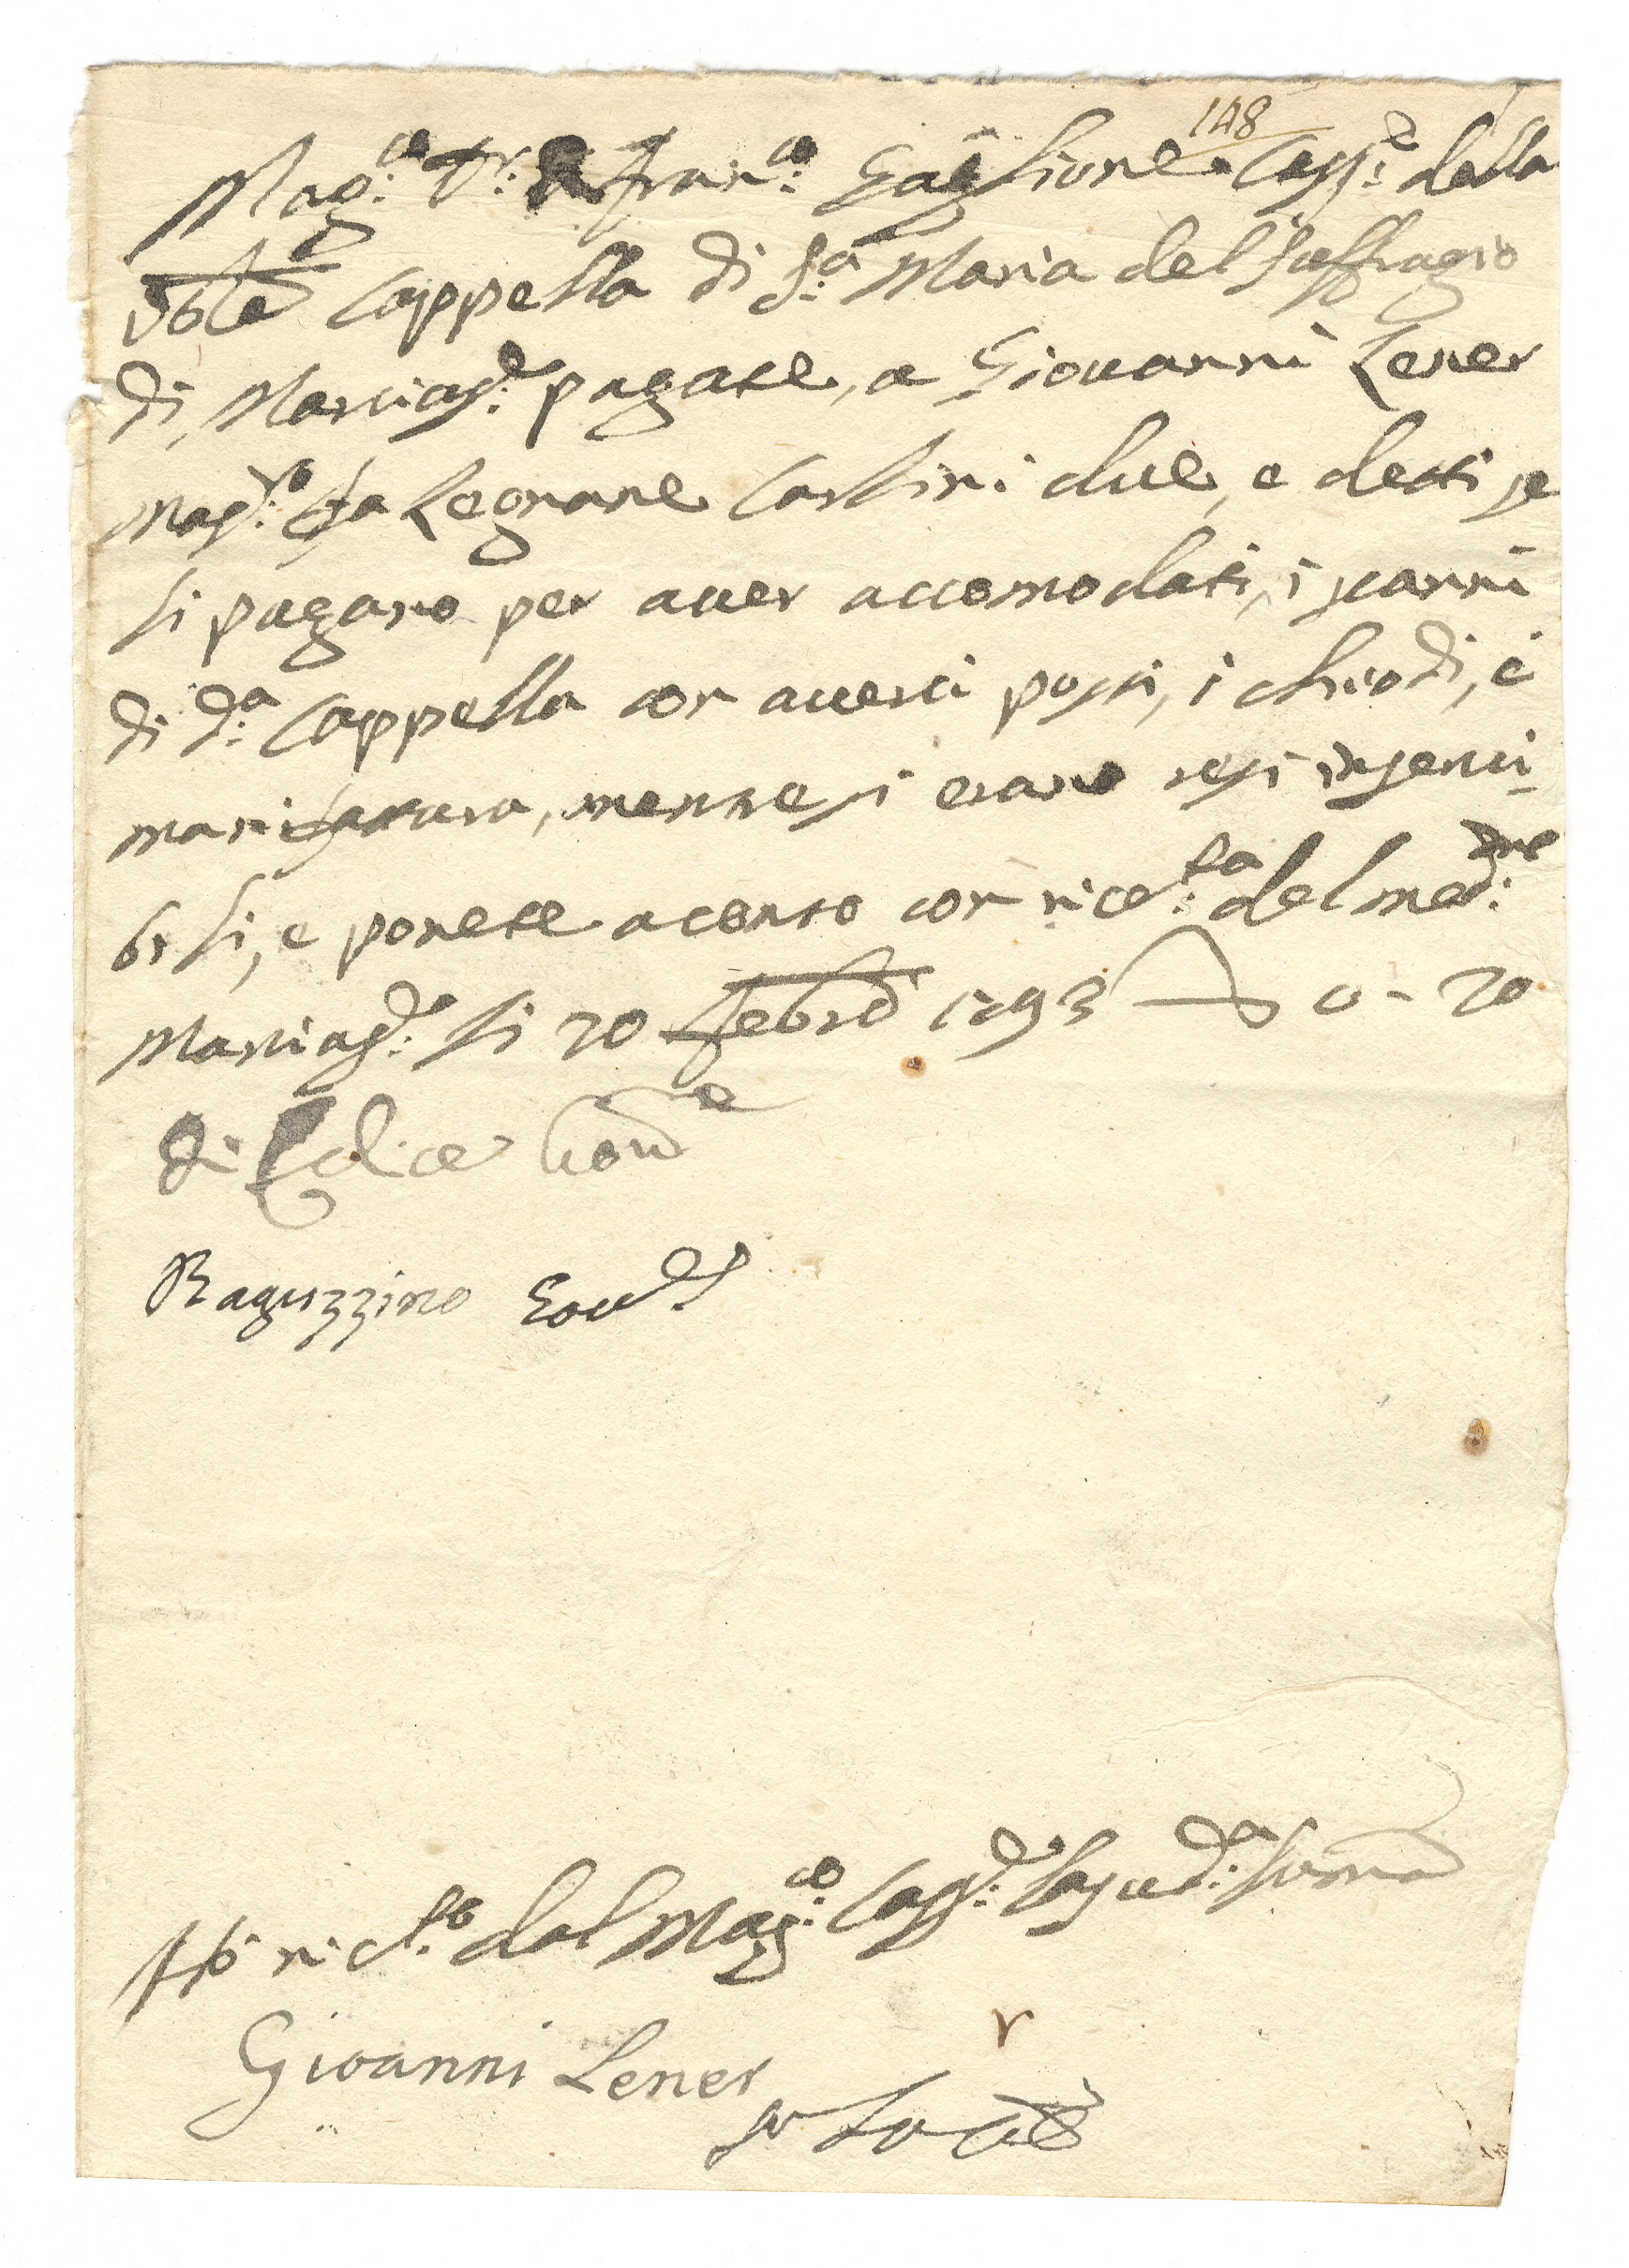 148
Mag.co Dr. Fran.co Gaglione Cass.e della
Ven.e Cappella di S.a Maria del Suffragio
di Marciag.e pagate, a Giovanni Lener
Mas.ro da Legname Carlini due, e detti se
li pagano per aver accomodati, i scanni
di d.a Cappella con averci posti, i chiodi, e
manifattura, mentre si erano resi inservi-
bili, e ponete a conto con rice.ta del med.mo
Marciag.e li 20 Febro 1793 0 - 20
di Felice Gov.e
Raguzzino Gov.e
Hò ric.to dal Mag.co Cass.e la sud.a somma
Giovanni Lener